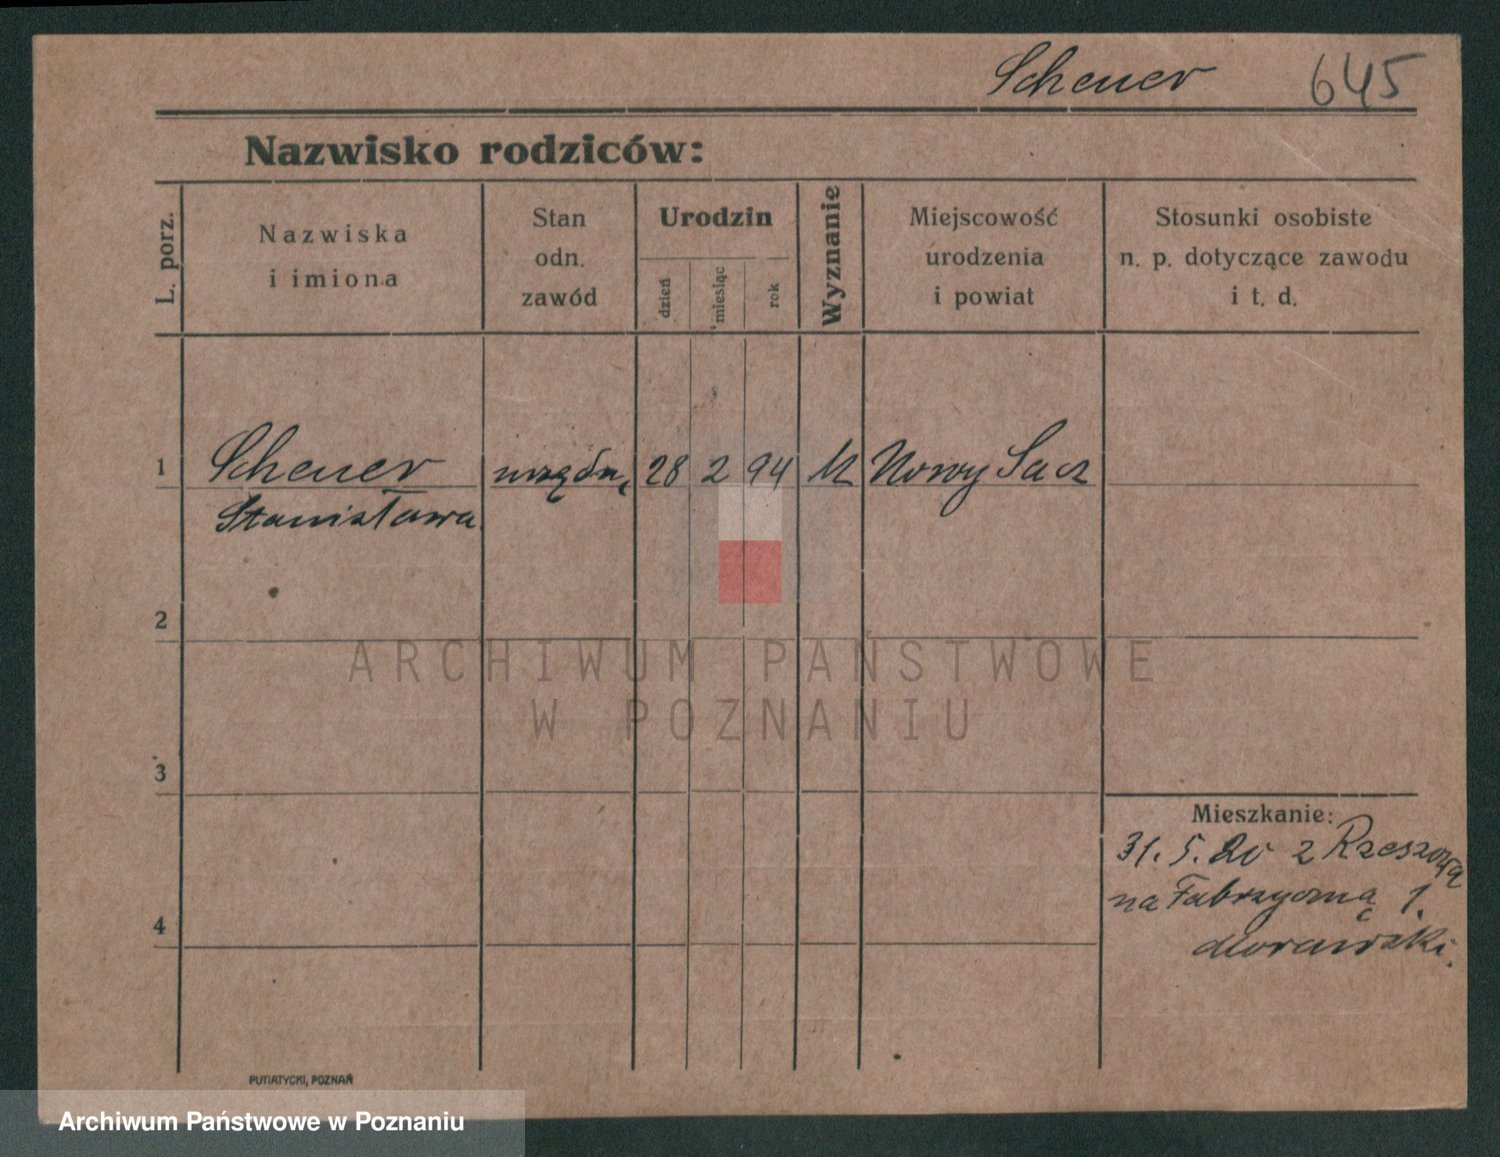 Scheuer 645
Nazwisko rodziców:
L. porz.
Nazwiska
i imiona
Stan
odn.
zawód
Urodzin
dzień
miesiąc
rok
Wyznanie
Miejscowość
urodzenia
i powiat
Stosunki osobiste
n. p. dotyczące zawodu
i t. d.
1 Scheuer urzędn. 28 2 94 Nowy Sacz
Stanisława
2
ARCHIWUM PAŃSTWOWE
W POZNANIU
3
Mieszkanie:
31. 5. 20 z Rzeszowa
na Fabryczną 1.
4
Morawski.
PUTIATYCKI, POZNAŃ
Archiwum Państwowe w Poznaniu